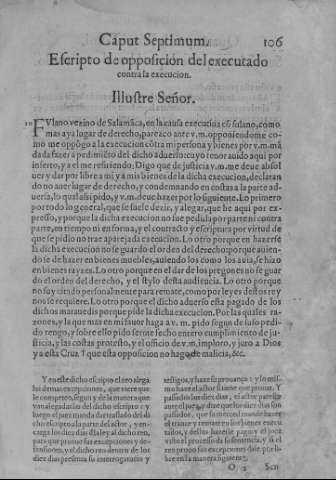 Caput Septimum. 106
Escripto de oposición del executado
contra la execucion.
Illustre Señor.
FVlano vezino de Salamãca, en la causa executiua cõ fulano, como
mas aya lugar de derecho, parezco ante v.m. opponiendome co-
mo me oppõgo a la execucion cõtra mi persona y bienes por v.m. mã
dada fazer a pedimiẽto del dicho aduerso: cuyo tenor auido aqui por
inserto, y a el me refiriendo. Digo que de justicia v.m. me deue absol
uer y dar por libre a mi y a mis bienes de la dicha execucion, declaran
do no auer lugar de derecho, y condemnando en costas a la parte ad-
uersa, lo qual assi pido, y v.m. deue hazer por lo siguiente. Lo primero
por todo lo general, que se suele dezir, y alegar, que he aqui por ex-
presso, y porque la dicha execucion no fue pedida por parte ni contra
parte, en tiempo ni en forma, y el contracto y escriptura por virtud de
que se pidio no trae aparejada execucion. Lo otro porque en hazerse
la dicha execucion no se guardo el orden del derecho: porque auien-
do se de hazer en bienes muebles, auiendo los como los auia, se hizo
en bienes rayzes. Lo otro porque en el dar de los pregones no se guar
do el orden del derecho, y el stylo desta audiencia. Lo otro porque
no fuy citado personalmente para remate, como por leyes destos rey
nos se requiere. Lo otro porque el dicho aduerso esta pagado de los
dichos marauedis porque pide la dicha execucion. Por las quales ra-
zones, y las que mas en mi fauor haga a v. m. pido segun de suso pedi-
do tengo, y sobre ello pido serme fecho entero cumplimiento de ju-
sticia, y las costas protesto, y el officio de v.m. imploro, y juro a Dios
y a esta Cruz † que esta opposicion no hago de malicia, &c.
Y en este dicho escripto el reo alega
las demas excepciones, que viere que
le competen, segun y de la manera que
van alegadas en el dicho escripto: y
luego el juez manda dar traslado del di
cho escripto a la parte del actor, y en-
carga los diez dias dla ley al dicho reo,
para que prueue sus excepciones y de-
fensiones, y el dicho reo dentro de los
diez dias presenta su interrogatorio y
testigos, y haze su prouança: y lo mis-
mo haze el actor si tiene que prouar. Y
passados los diez dias, el actor paresce
ante el juez, y dize que los diez dias son
passados, que su merced mande hazer
el trance y remate en los bienes execu
tados, y dellos hazerle pago: y el juez
visto el processo da su sentencia, y si el
reo prouo sus excepciones, pronuncia
en la manera siguiente.
O 2 Sen